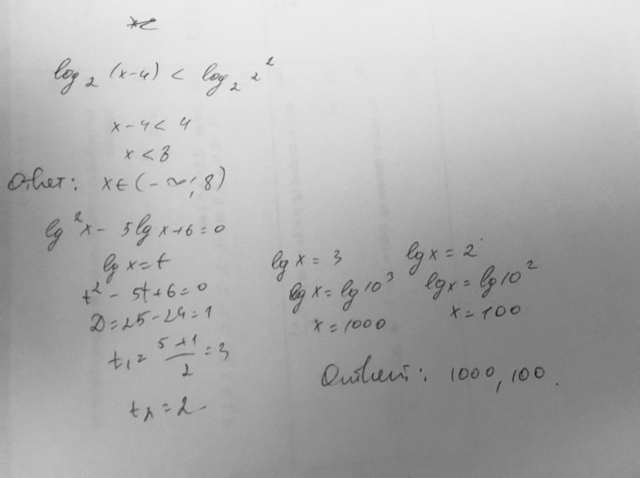 log₂ (x-4) < log₂ 2²
x-4 < 4
x < 8
Ответ: x∈(-∞; 8)
lg²x - 5lgx+6=0
lgx=t
t² - 5t+6=0
D=25-24=1
t₁= (5+1)/2 =3
t₂=2
lgx=3
lgx=lg10³
x=1000
lgx=2
lgx=lg10²
x=100
Ответ: 1000, 100.